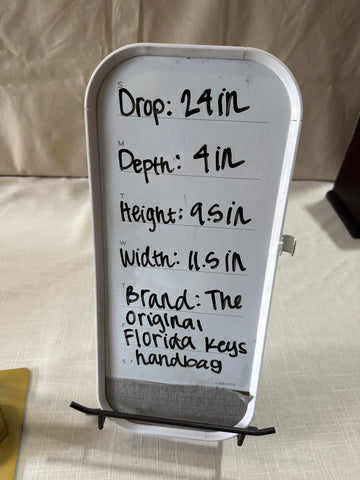 S
Drop: 24in
M
Depth: 4in
T
Height: 9.5in
W
Width: 11.5in
T
Brand: The
original
F
Florida Keys
S
handbag
U BRANDS